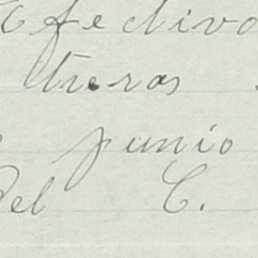 Efectivo
treras
junio
del C.